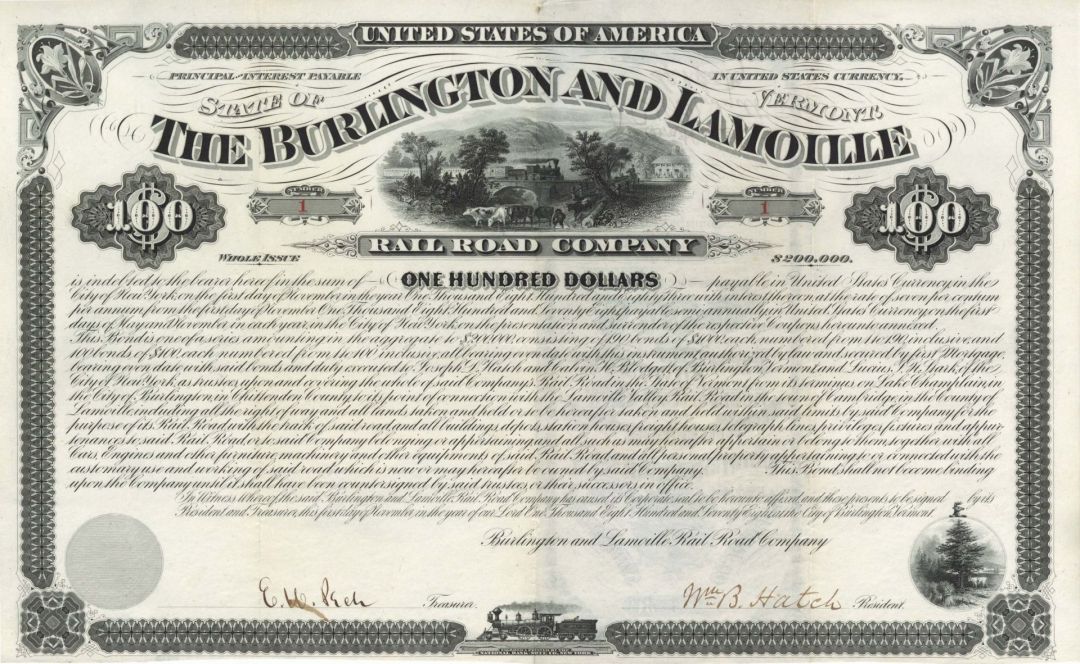 UNITED STATES OF AMERICA
PRINCIPAL AND INTEREST PAYABLE IN UNITED STATES CURRENCY.
STATE OF VERMONT.
THE BURLINGTON AND LAMOILLE
100 NUMBER 1 NUMBER 1 100
RAIL ROAD COMPANY
WHOLE ISSUE $200.000.
is indebted to the bearer hereof in the sum of ONE HUNDRED DOLLARS payable in United States Currency, in the
City of New York, on the first day of November in the year One Thousand Eight Hundred and with interest thereon at the rate of seven per centum
per annum from the first day of November One Thousand Eight Hundred and Seventy Eight payable semi annually in United States Currency on the first
days of May and November in each year, in the City of New York, on the presentation and surrender of the respective Coupons hereunto annexed.
This Bond is one of a series amounting in the aggregate to $200.000. consisting of 190 bonds of $1000. each, numbered from 1 to 190 inclusive, and
100 bonds of $100. each, numbered from 1 to 100 inclusive, all bearing even date with this instrument, authorized by law and secured by first Mortgage,
bearing even date with said bonds and duly executed to Joseph D. Hatch and H. Blodgett of Burlington Vermont and Lucius of the
City of New York, as trustees, upon and covering the whole of said Company's Rail Road in the State of Vermont from its terminus on Lake Champlain, in
the City of Burlington, in Chittenden County, to its point of connection with the Lamoille Valley Rail Road in the town of Cambridge, in the County of
Lamoille, including all the right of way and all lands, taken and held or to be hereafter taken and held within said limits by said Company for the
purpose of its Rail Road with the track of said road, and all buildings, depots, station houses, freight houses, telegraph lines, privileges, fixtures and appur-
tenances to said Rail Road, or to said Company belonging or appertaining and all such as may hereafter appertain or belong to them, together with all
Cars, Engines and other furniture, machinery and other equipments of said Rail Road and all personal property appertaining to or connected with the
customary use and working of said road which is now or may hereafter be owned by said Company. This Bond shall not become binding
upon the Company until it shall have been countersigned by said trustees, or their successors in office.
In Witness Whereof the said Burlington and Lamoille Rail Road Company has caused its Corporate seal to be hereunto affixed, and these presents to be signed by its
President and Treasurer, this first day of November, in the year of our Lord One Thousand Eight Hundred and Seventy Eight, at the City of Burlington, Vermont.
Burlington and Lamoille Rail Road Company
Treasurer. Wm. B. Hatch President.
NATIONAL BANK NOTE CO. NEW YORK